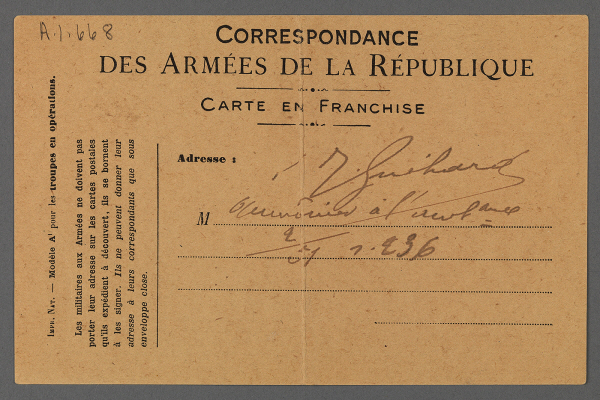 A.1.668
CORRESPONDANCE
DES ARMÉES DE LA RÉPUBLIQUE
CARTE EN FRANCHISE
IMPR. NAT. — Modèle A¹ pour les troupes en opérations.
Les militaires aux Armées ne doivent pas
porter leur adresse sur les cartes postales
qu'ils expédient à découvert, ils se bornent
à les signer. Ils ne peuvent donner leur
adresse à leurs correspondants que sous
enveloppe close.
Adresse :
Guihard
M Aumônier à l'ambulance
236